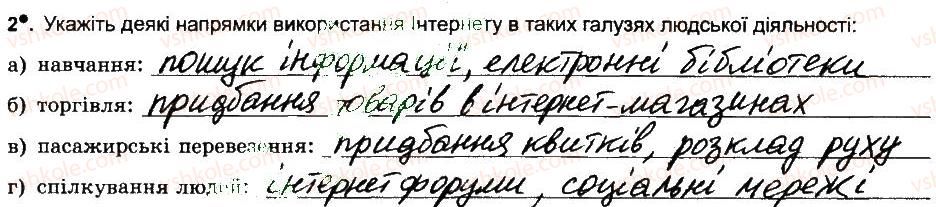 2•. Укажіть деякі напрямки використання Інтернету в таких галузях людської діяльності:
а) навчання: пошук інформації, електронні бібліотеки
б) торгівля: придбання товарів в інтернет-магазинах
в) пасажирські перевезення: придбання квитків, розклад руху
г) спілкування людей: інтернет форуми, соціальні мережі